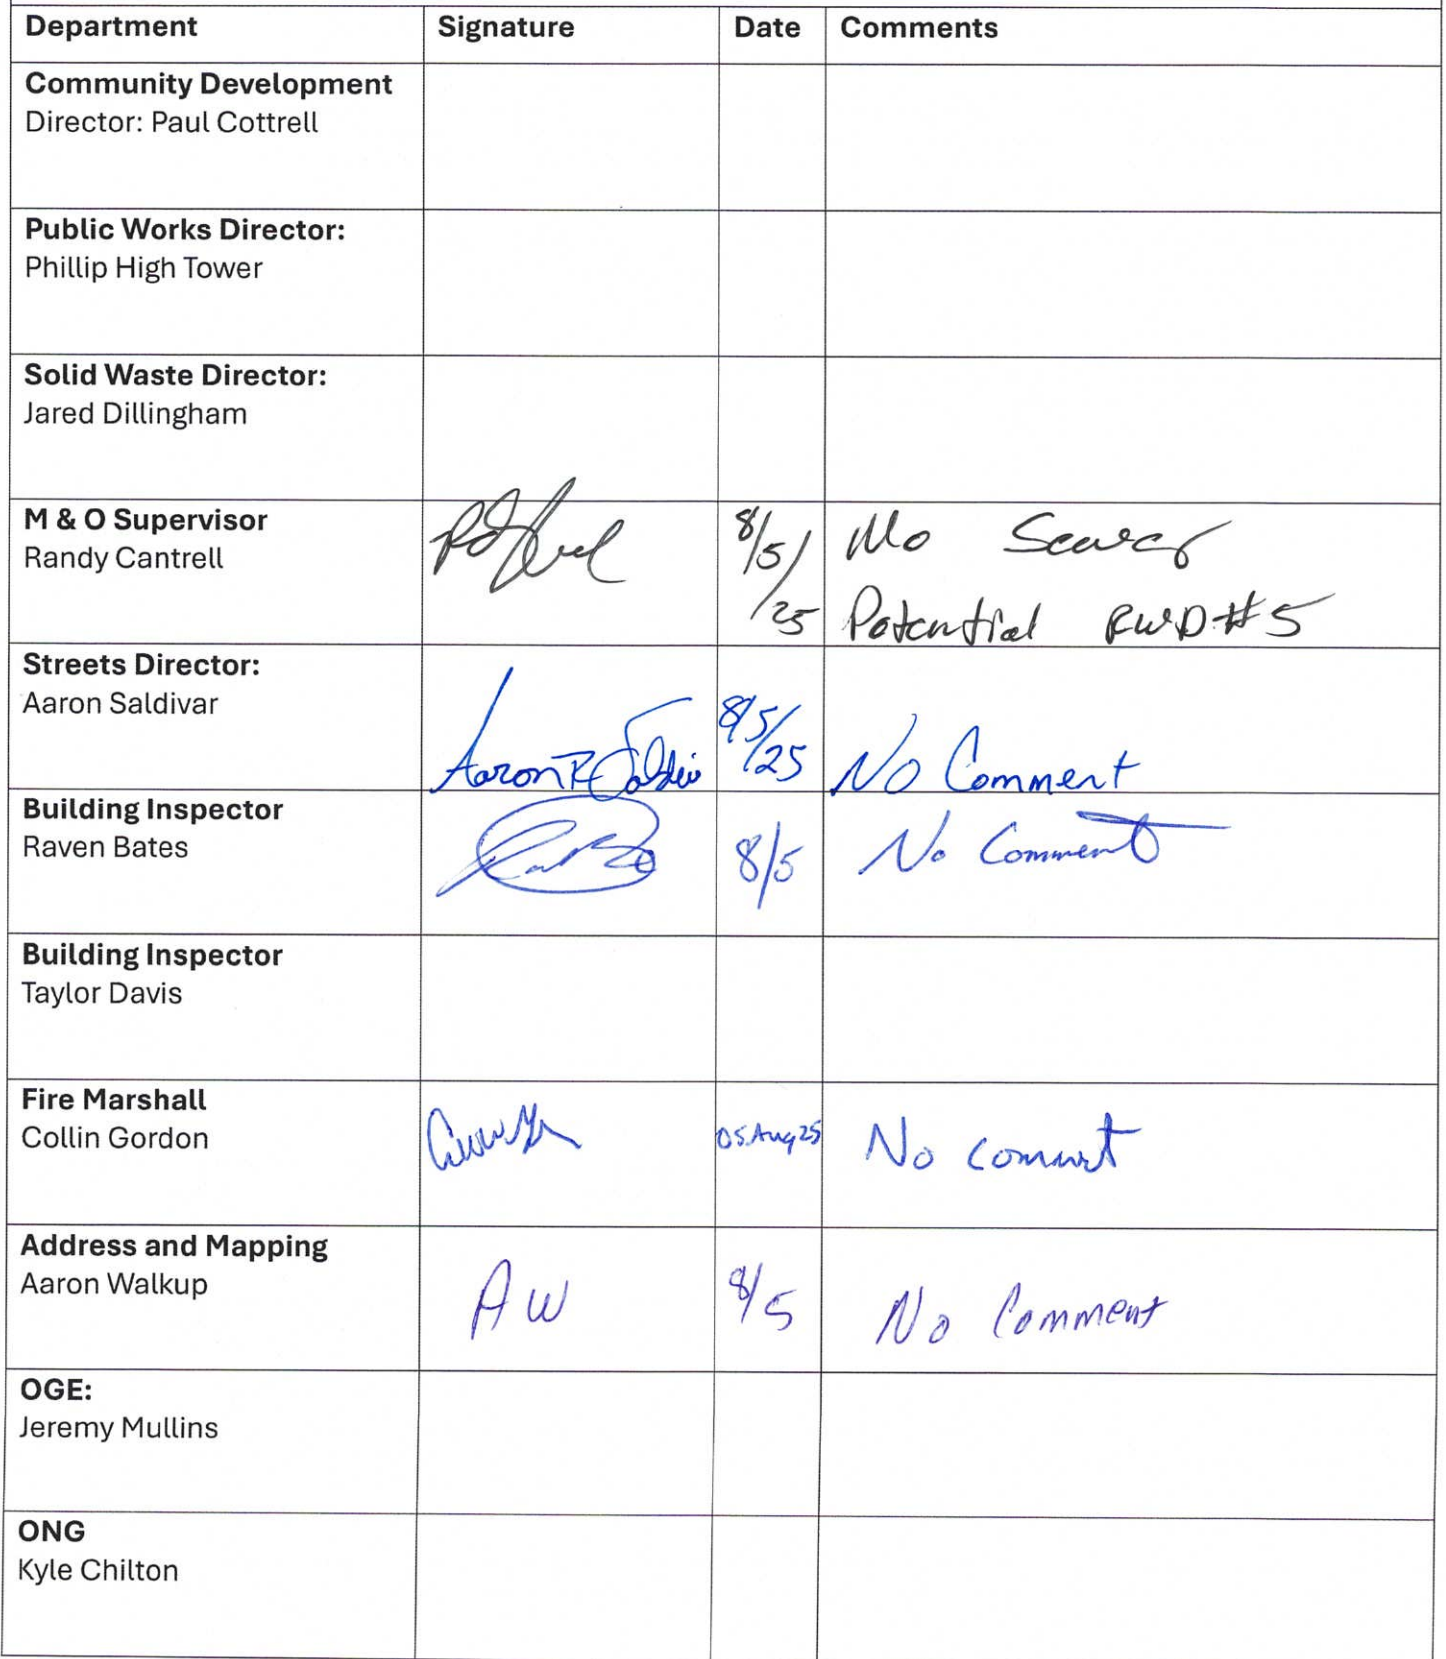 Department Signature Date Comments
Community Development
Director: Paul Cottrell
Public Works Director:
Phillip High Tower
Solid Waste Director:
Jared Dillingham
M & O Supervisor
Randy Cantrell
8/5/
/25
No Sewer
Potential RWD#5
Streets Director:
Aaron Saldivar
Aaron R Saldiv
8/5/
/25
No Comment
Building Inspector
Raven Bates
8/5
No Comment
Building Inspector
Taylor Davis
Fire Marshall
Collin Gordon
05Aug25
No comment
Address and Mapping
Aaron Walkup
AW
8/5
No Comment
OGE:
Jeremy Mullins
ONG
Kyle Chilton